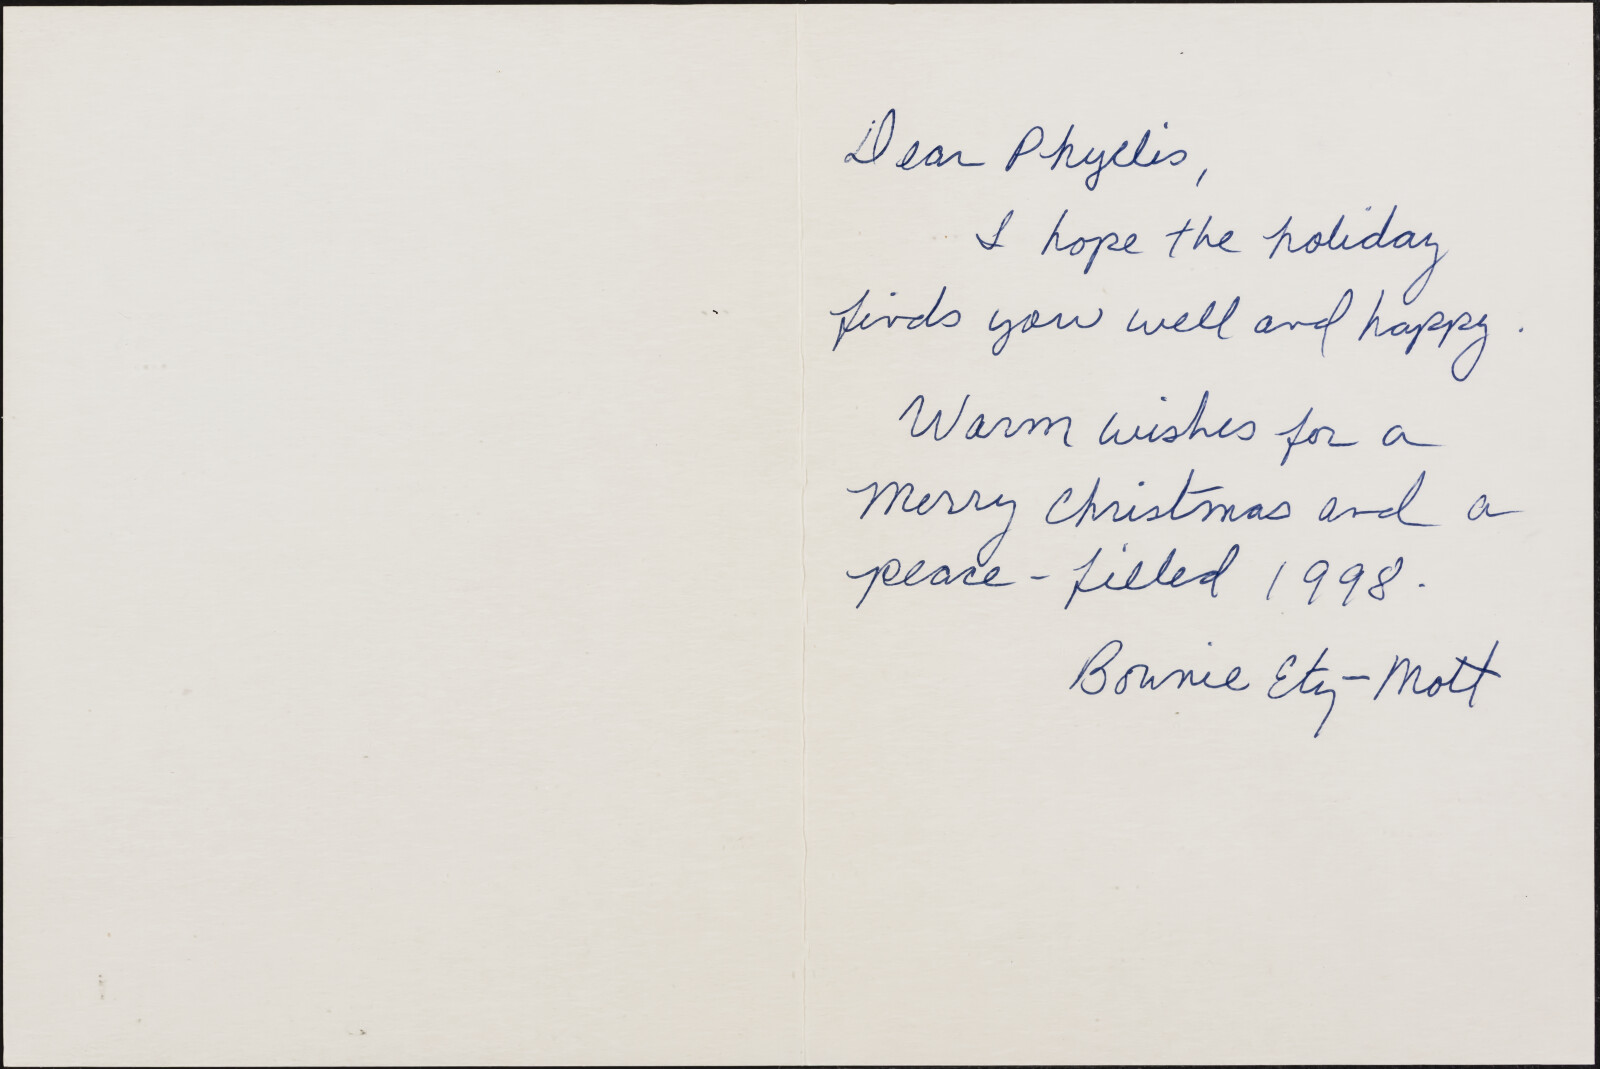 Dear Phyllis,
I hope the holiday
finds you well and happy.
Warm wishes for a
Merry Christmas and a
peace-filled 1998.
Bonnie Ety-Mott